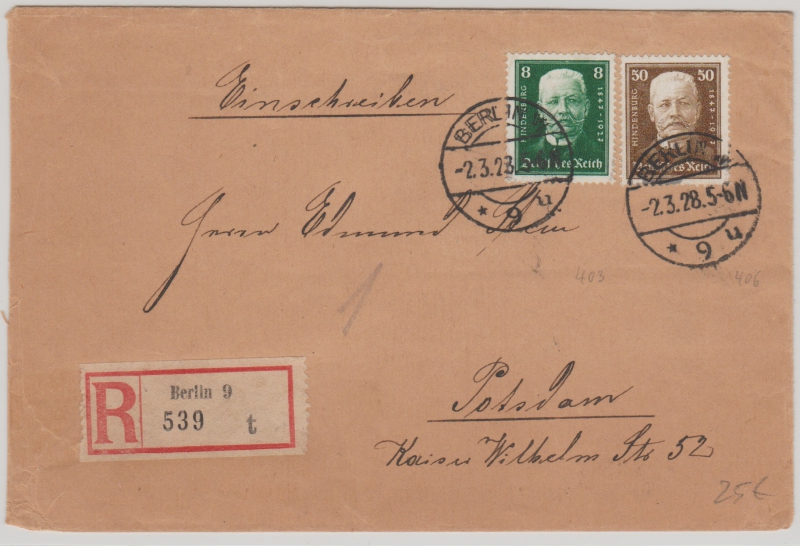 Einschreiben
8 8
HINDENBURG
Deutsches Reich
50 50
HINDENBURG 1847-1927
BERLIN W
-2.3.28.
* 9 u
BERLIN W
-2.3.28.5-6N
* 9 u
Herrn Edmund
403
406
R
Berlin 9
539 t
Potsdam
Kaiser Wilhelm Str 52
25€